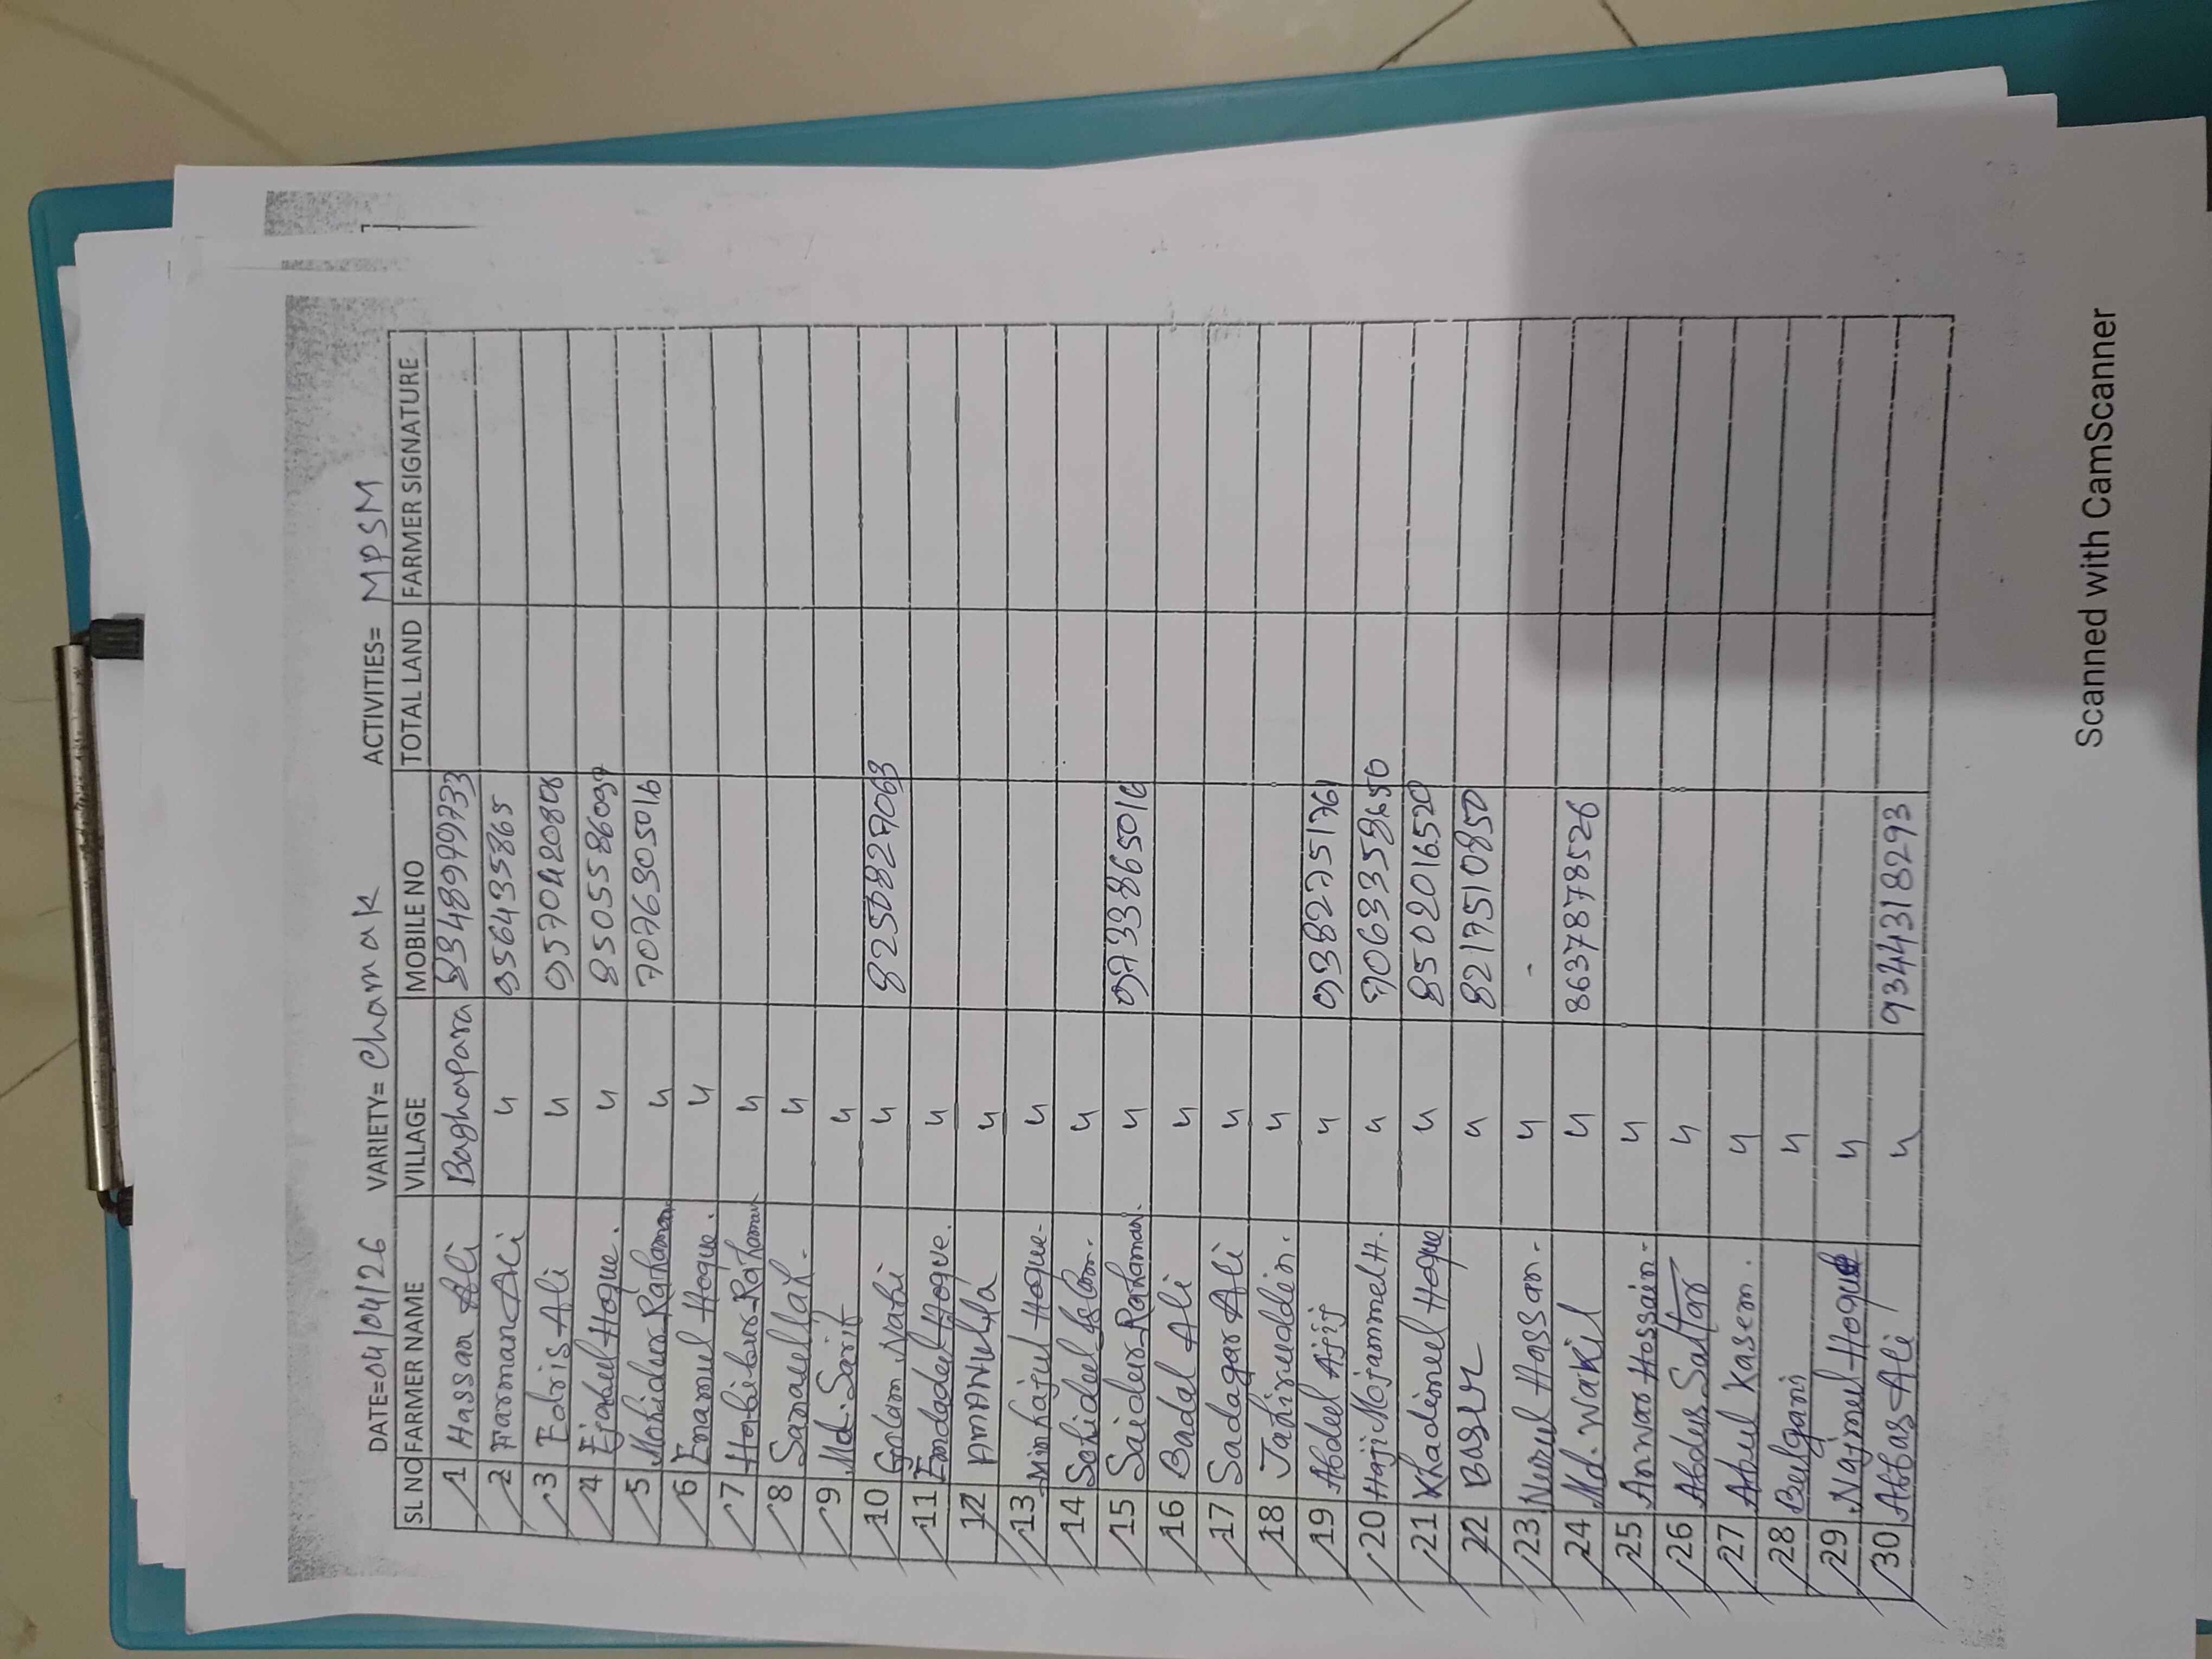 DATE=04/04/26 VARIETY= Chamak ACTIVITIES= MPSM
SL NO FARMER NAME VILLAGE MOBILE NO TOTAL LAND FARMER SIGNATURE
1 Hassan Ali Baghapara 8348979733
2 Farman Ali 〃 9564353865
3 Edris Ali 〃 9570420806
4 Ejabul Hoque. 〃 8505586097
5 Mohidur Rahaman 〃 7076305016
6 Enamul Hoque. 〃
7 Habibur Rahaman 〃
8 Sanaullah. 〃
9 Md. Sarif 〃
10 Golam Nabi 〃 8250827063
11 Emdadul Hoque. 〃
12 AMANULLA 〃
13 Minhajul Hoque. 〃
14 Sohidul Islam. 〃
15 Saidur Rahaman. 〃 9733865016
16 Badal Ali 〃
17 Sadagar Ali 〃
18 Jahiruddin. 〃
19 Abdul Ajij 〃 9382751761
20 Haji Mojammel H. 〃 9063358650
21 Khadimul Hoque 〃 8502016520
22 Basir 〃 8217510850
23 Nurul Hassan. 〃 -
24 Md. Wakil 〃 8637878526
25 Anwar Hossain. 〃
26 Abdus Sattar 〃
27 Abul Kasem. 〃
28 Bulgani 〃
29 Najmul Hoque 〃
30 Abbas Ali 〃 9344318293
Scanned with CamScanner